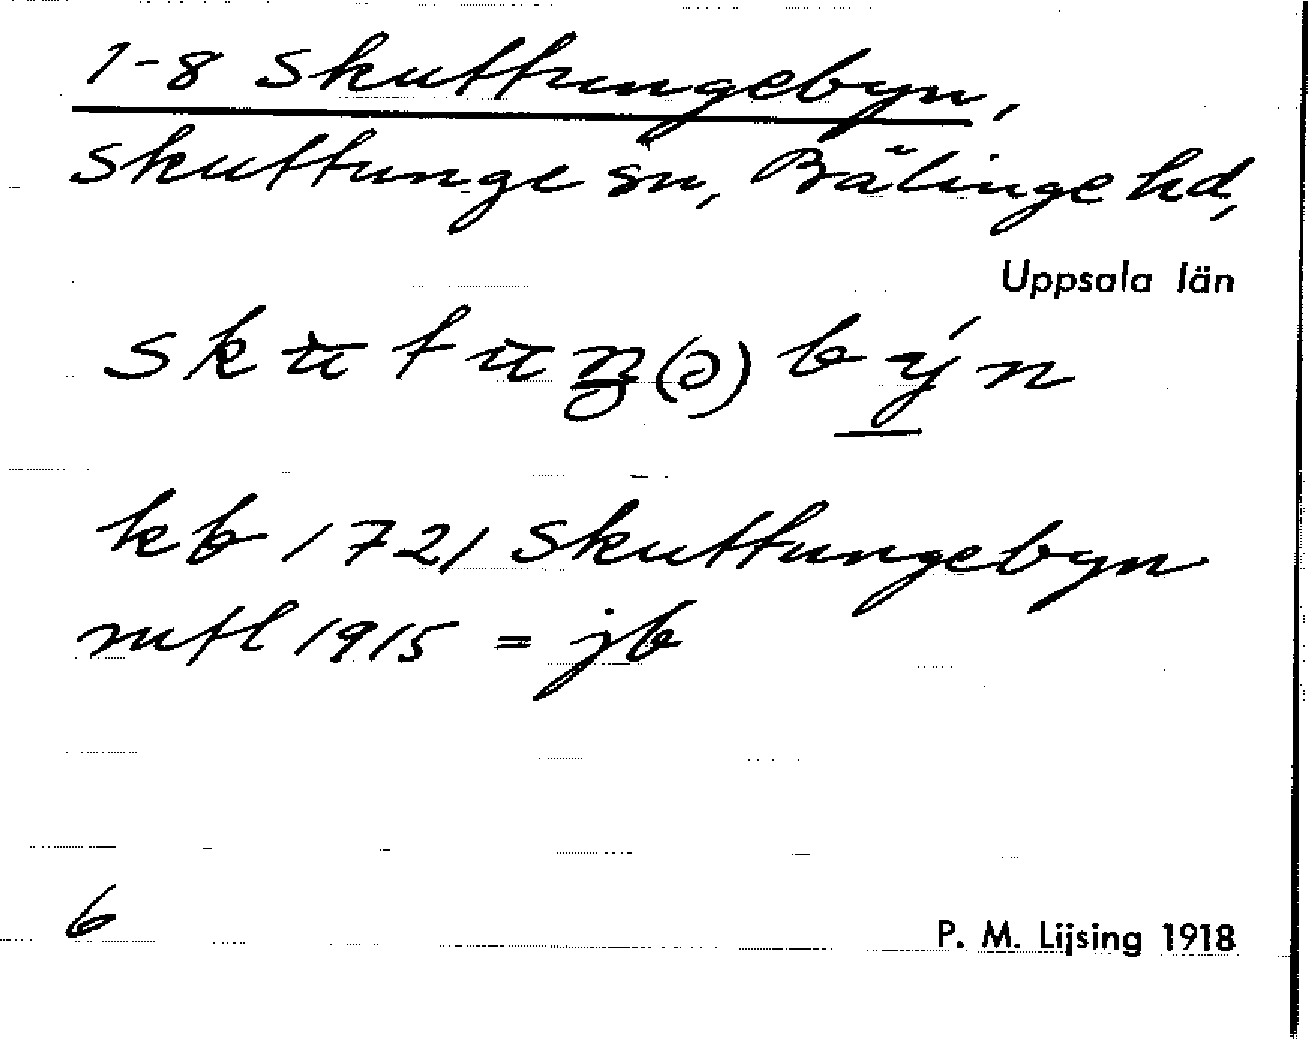 1-8 Skuttungebyn,
Skuttunge sn, Bälinge hd,
Uppsala län
skʉtʉŋ(ə)býn
kb 1721 Skuttungebyn
mtl 1915 = jb
6
P. M. Lijsing 1918